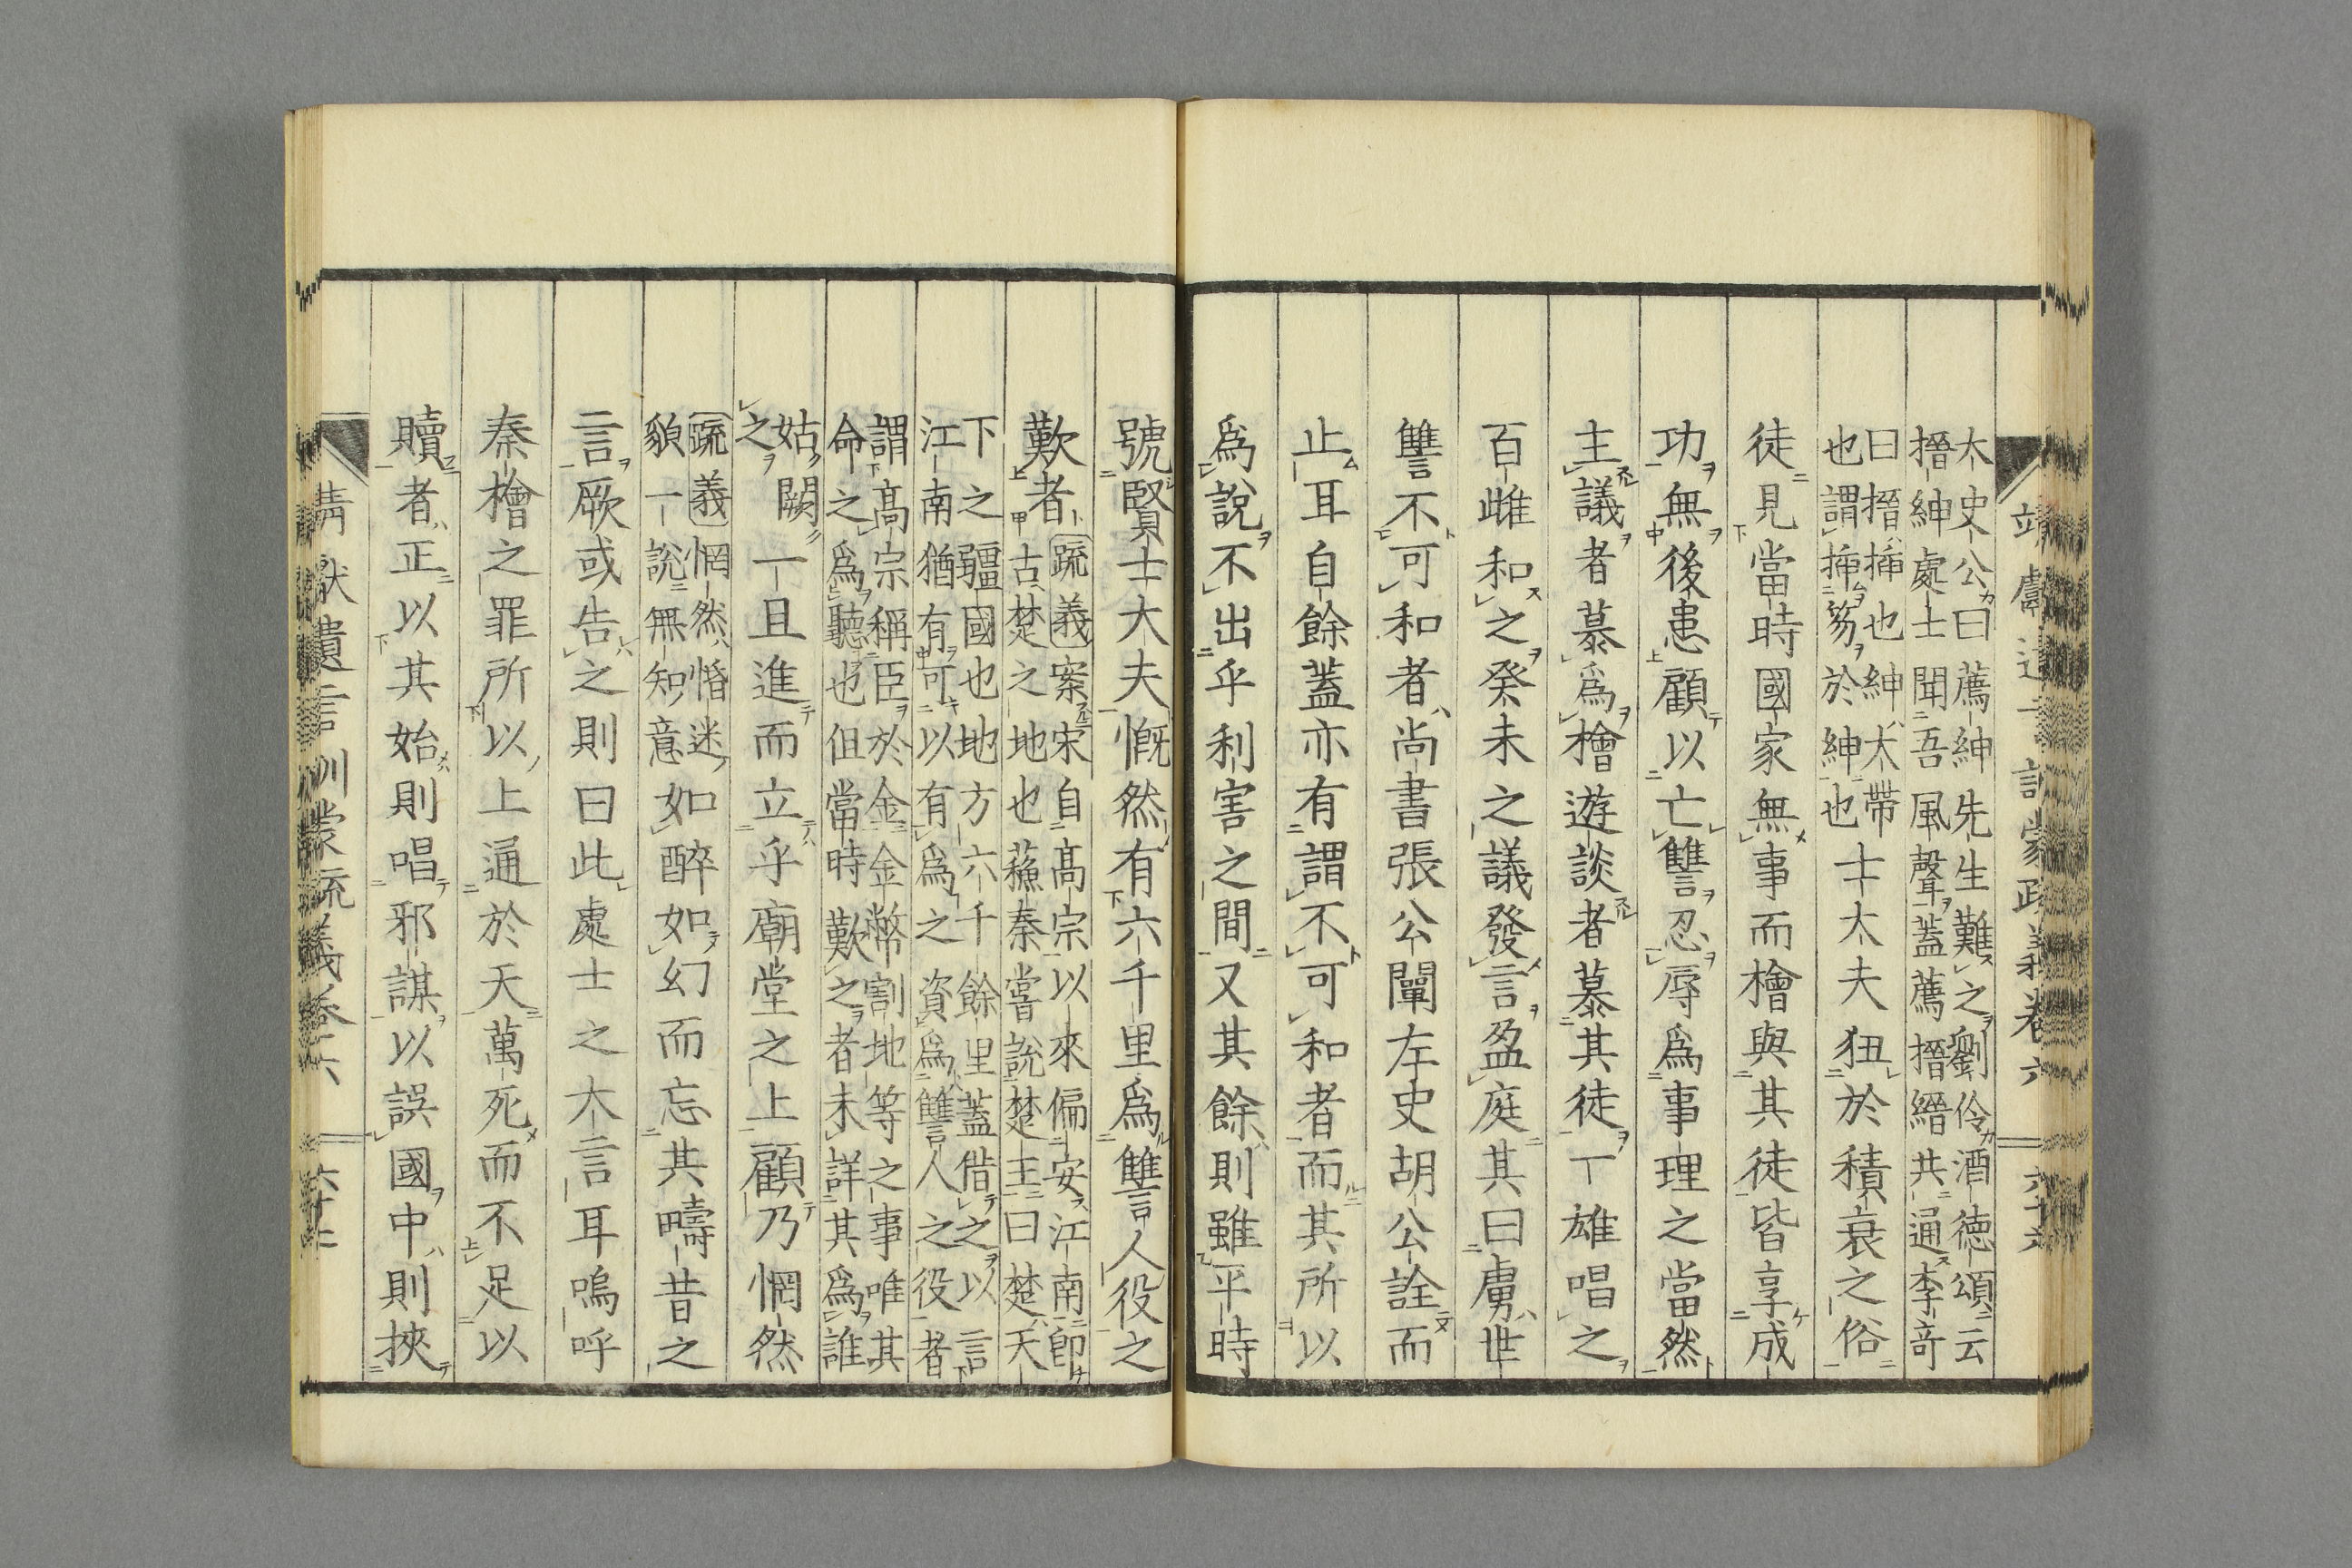 太史公曰薦紳先生難之劉伶酒德頌云
搢紳處士聞吾風聲蓋薦搢縉共通李奇
曰搢揷也紳大帶
也謂揷笏於紳也士大夫狃於積衰之俗
徒見當時國家無事而檜與其徒皆享成
功無後患顧以亡讐忍辱爲事理之當然
主議者慕爲檜遊談者慕其徒一雄唱之
百雌和之癸未之議發言盈庭其曰虜世
讐不可和者尚書張公闡左史胡公詮而
止耳自餘蓋亦有謂不可和者而其所以
爲說不出乎利害之間又其餘則雖平時
號賢士大夫慨然有六千里爲讐人役之
歎者
疏義案宋自髙宗以來偏安江南卽
古楚之地也蘇秦嘗說楚王曰楚天
下之疆國也地方六千餘里蓋借之以言
江南猶有可以有爲之資爲讐人之役者
謂髙宗稱臣於金金幣割地等之事唯其
命之爲聽也但當時歎之者未詳其爲誰
姑闕
之一且進而立乎廟堂之上顧乃惘然
疏義惘然惛迷
貌一說無知意如醉如幻而忘其疇昔之
言厥或告之則曰此處士之大言耳嗚呼
秦檜之罪所以上通於天萬死而不足以
贖者正以其始則唱邪謀以誤國中則挾
靖獻遺言訓蒙疏義卷六 六十七